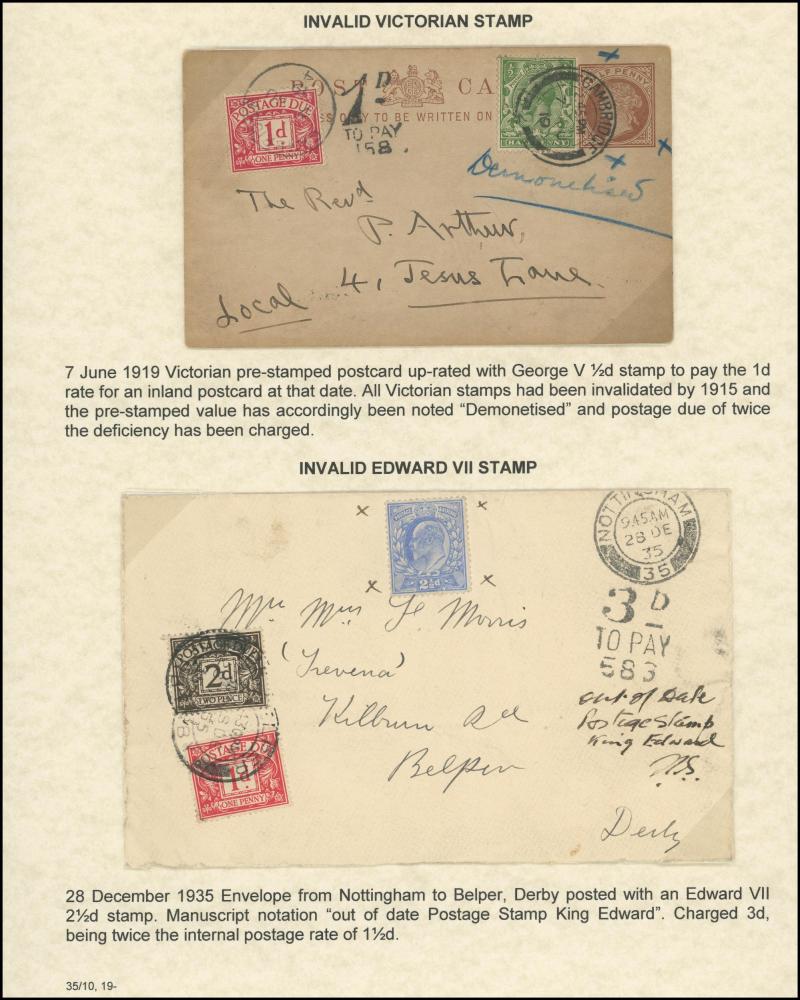 INVALID VICTORIAN STAMP
POST CA
SS ONLY TO BE WRITTEN ON
HALF PENNY
POSTAGE DUE
1d
ONE PENNY
1D
TO PAY
158.
½ ½
HALFPENNY
CAMBRIDGE
Demonetised
The Revd
P. Arthur,
4, Jesus Lane.
Local
7 June 1919 Victorian pre-stamped postcard up-rated with George V ½d stamp to pay the 1d
rate for an inland postcard at that date. All Victorian stamps had been invalidated by 1915 and
the pre-stamped value has accordingly been noted “Demonetised” and postage due of twice
the deficiency has been charged.
INVALID EDWARD VII STAMP
2½d
NOTTINGHAM
9.45AM
28 DE
35
35
3D
TO PAY
583
Morris
'Trevena'
Kilburn Rd
Belper
Derby
out of Date
Postage Stamp
King Edward
POSTAGE DUE
2d
TWO PENCE
POSTAGE DUE
1d
ONE PENNY
28 December 1935 Envelope from Nottingham to Belper, Derby posted with an Edward VII
2½d stamp. Manuscript notation “out of date Postage Stamp King Edward”. Charged 3d,
being twice the internal postage rate of 1½d.
35/10, 19-